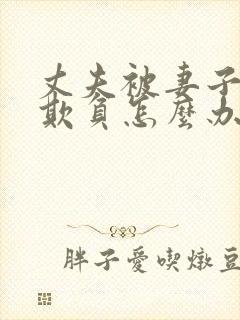 丈夫被妻子
欺負怎麼办
胖子愛喫燉豆